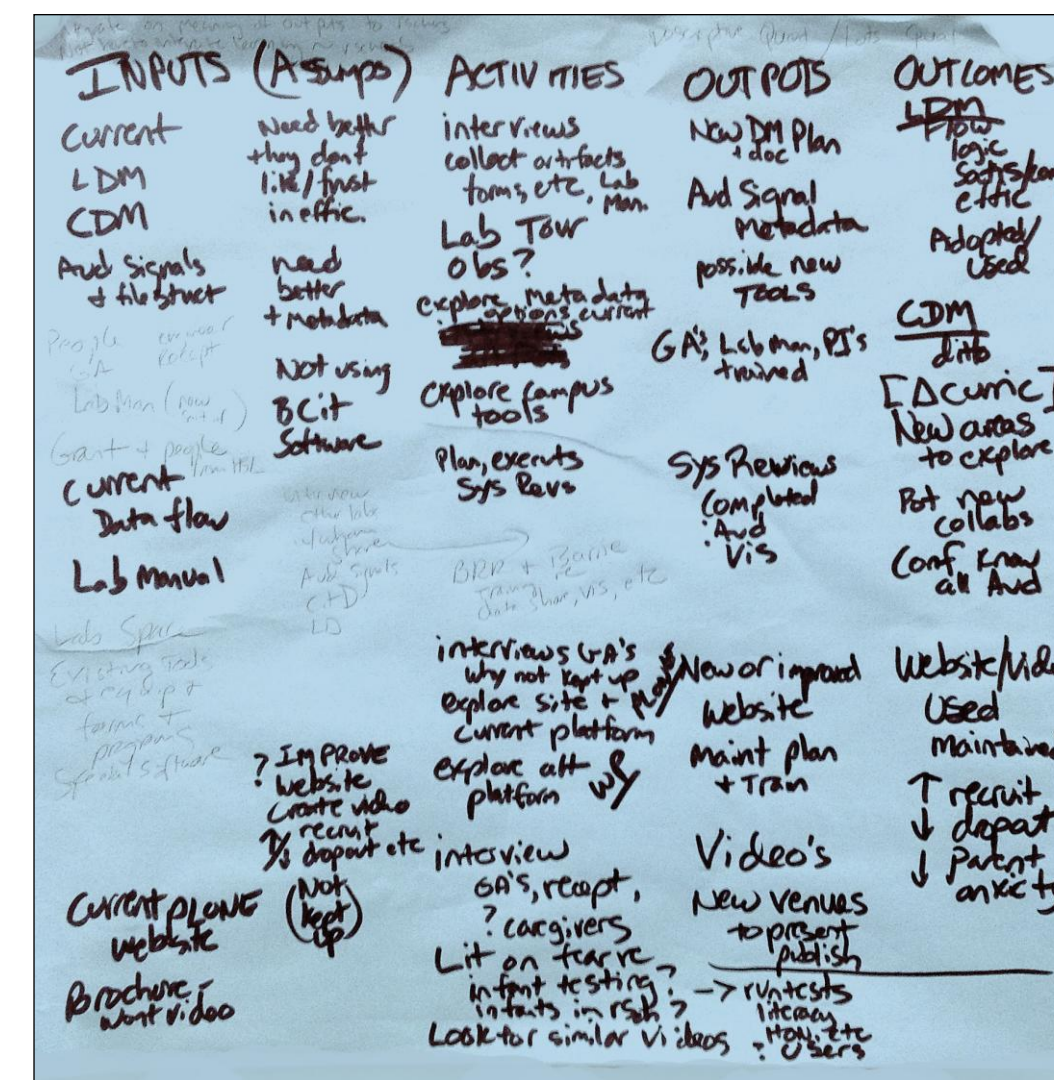 INPUTS (Assumps) ACTIVITIES OUTPUTS OUTCOMES
Current
LDM
CDM
Aud Signals
+ file struct
People
GA Recept
Lab Man (now
Grant + people
from HSL
Current
Data flow
Lab Manual
Lab Space
Existing Tools
+ equip +
forms +
programs
Special Software
Current PLONE
website
Brochure -
want video
Need better
they dont
like/frust
ineffic.
need
better
+ metadata
Not using
BCit
Software
interview
other labs
share
Aud Signals
C+D
LD
? IMPROVE
website
Create video
recruit
dropout etc
(Not
kept
up)
interviews
collect artifacts
forms, etc. Lab
Man.
Lab Tour
Obs?
explore metadata
options, current
explore campus
tools
Plan, execute
Sys Revs
BRD + Barrie
training re
data share, vis, etc
interviews GA's
why not kept up
explore site +
current platform
explore alt
platform
interview
GA's, recept,
? cargivers
Lit on fear re
infant testing ?
infants in rsch ?
Look for similar videos
New DM Plan
+ doc
Aud Signal
Metadata
possible new
TOOLS
GA's, Lab Man, PI's
trained
Sys Reviews
Completed
Aud
Vis
New or improved
website
Maint plan
+ Train
Video's
New venues
to present
publish
-> run tests
literacy
HON, etc
? Users
LDM
Flow
logic
effic
Adopted/
Used
CDM
ditto
[Δ curric]
New areas
to explore
Pot new
collabs
Conf know
all Aud
Website/Vide
Used
maintaine
↑ recruit
↓ dropout
↓ Parent
anxiety